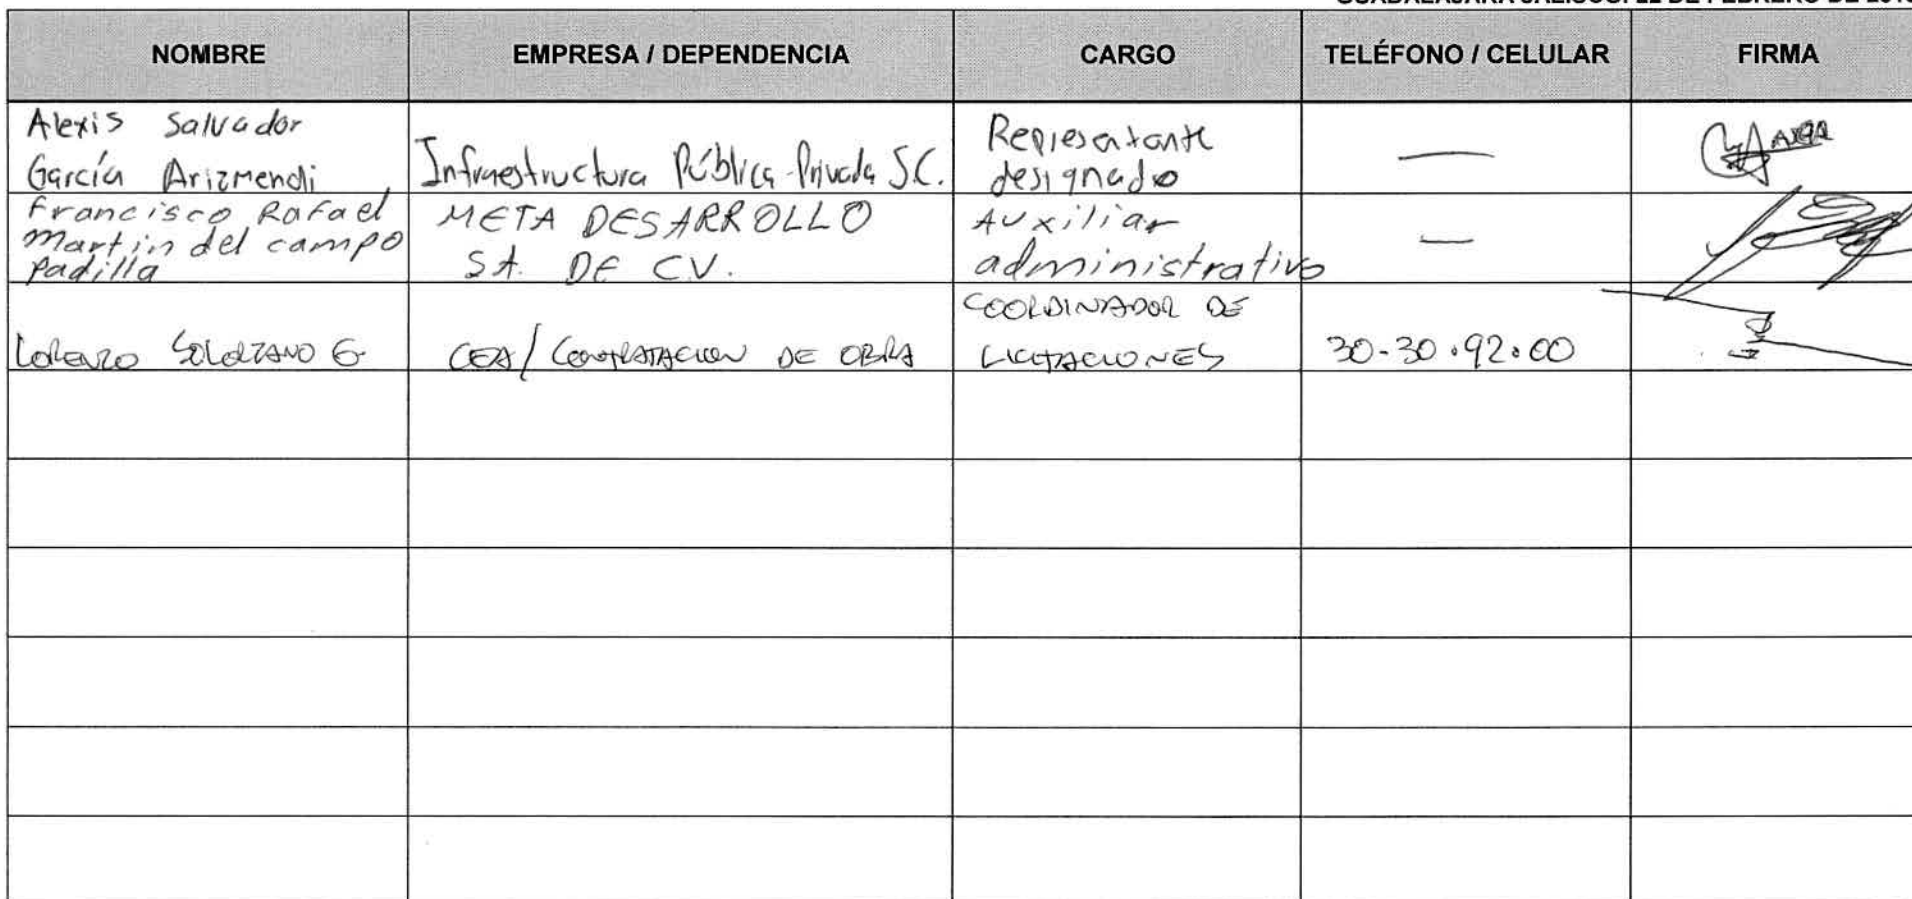 GUADALAJARA JALISCO. 22 DE FEBRERO DE
NOMBRE EMPRESA / DEPENDENCIA CARGO TELÉFONO / CELULAR FIRMA
Alexis Salvador
García Arizmendi
Infraestructura Pública-Privada S.C.
Representante
designado
—
Francisco Rafael
Martin del campo
Padilla
META DESARROLLO
SA. DE CV.
Auxiliar
administrativo
—
LORENZO SOLORZANO G.
CEA / CONTRATACION DE OBRA
COORDINADOR DE
LICITACIONES
30-30.92.00